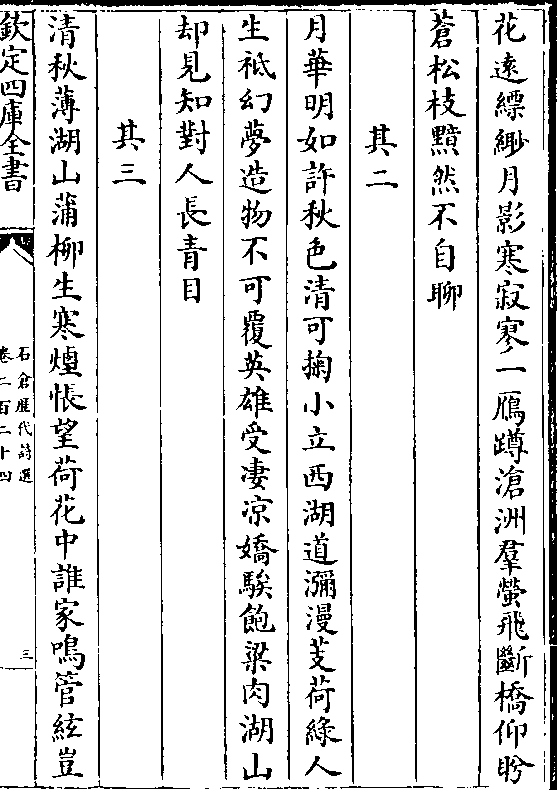 花遠縹緲月影寒寂寥一鴈蹲滄洲羣螢飛斷橋仰盼
蒼松枝黯然不自聊
其二
月華明如許秋色清可掬小立西湖道瀰漫芰荷綠人
生祗幻夢造物不可覆英雄受凄凉嬌騃飽粱肉湖山
却見知對人長青目
其三
清秋薄湖山蒲柳生寒煙悵望荷花中誰家鳴管絃豈
欽定四庫全書
石倉歷代詩選
卷二百二十四
三